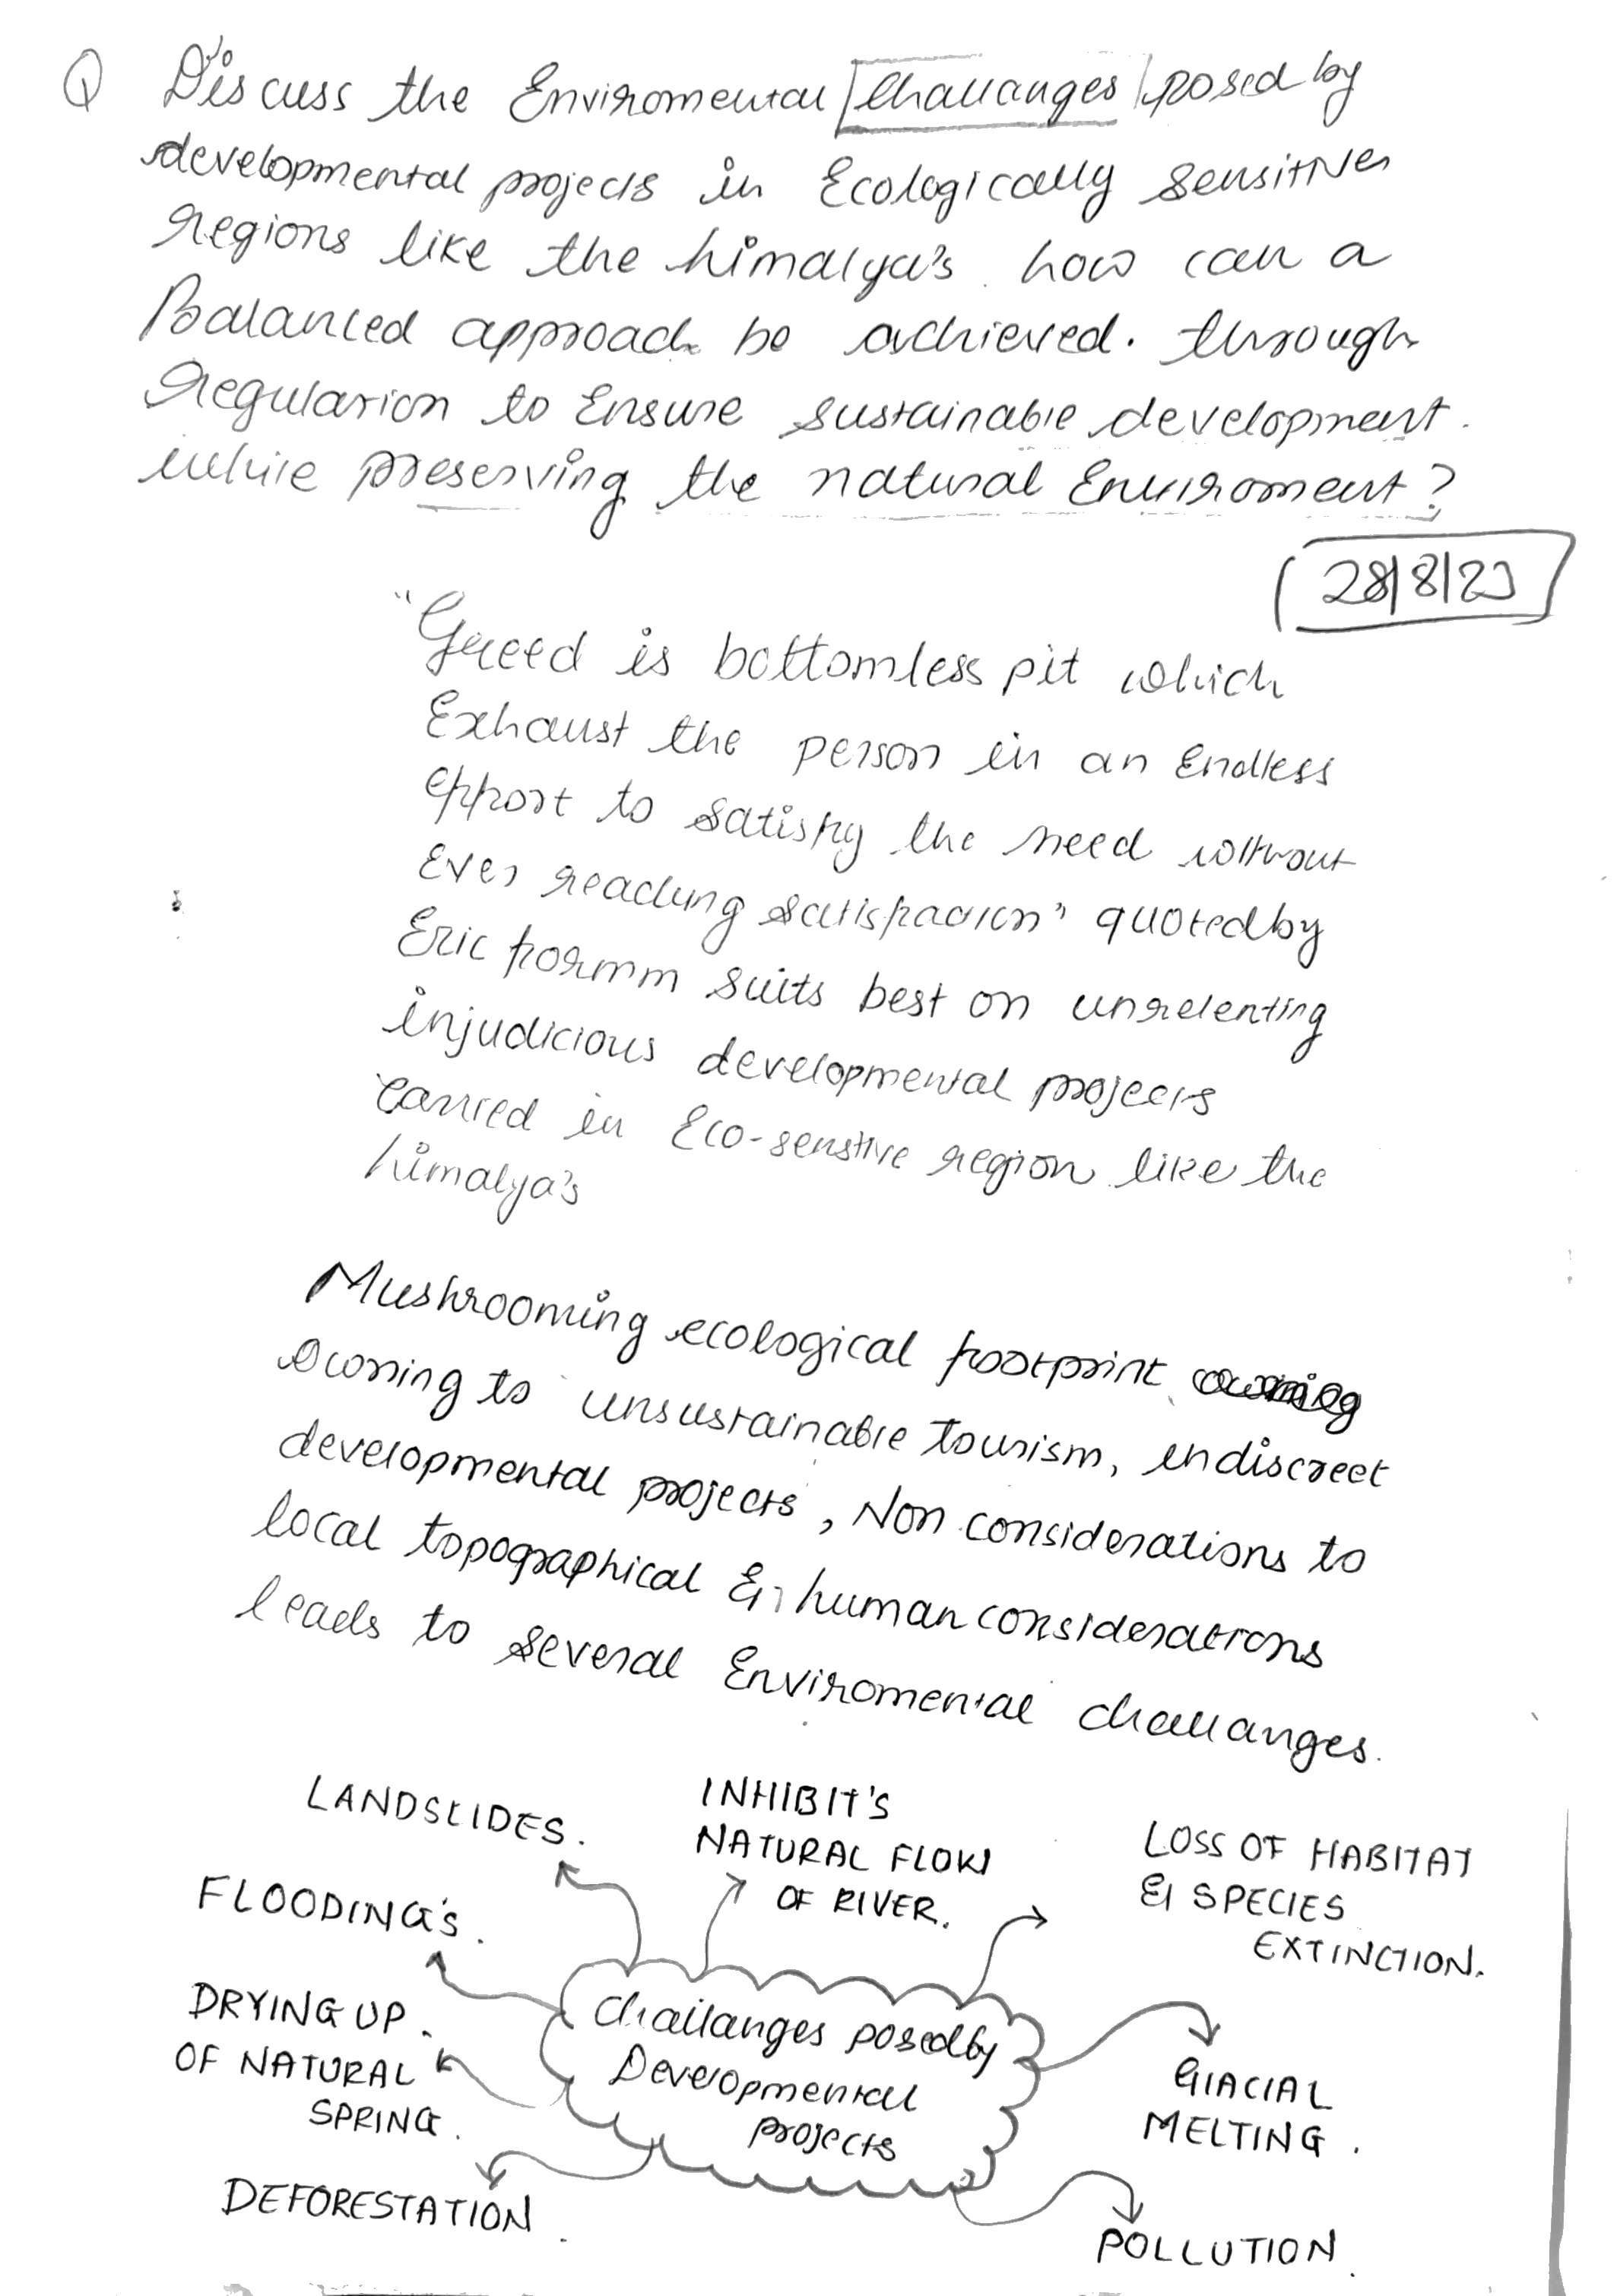 Q Discuss the Enviromental challanges posed by
developmental projects in Ecologically sensitive
regions like the himalya's. how can a
Balanced approach be achieved. through
Regulation to Ensure sustainable development.
while preserving the natural Enviroment?
28/8/23
"Greed is bottomless pit which
Exhaust the person in an Endless
effort to satisfy the need without
Ever reaching satisfaction" quoted by
Eric formm suits best on unrelenting
injudicious developmental projects
carried in Eco-senstive region like the
himalya's
Mushrooming ecological footprint
owning to unsustainable tourism, indiscreet
developmental projects, Non considerations to
local topographical & human considerations
leads to several Enviromental challanges.
LANDSLIDES.
INHIBIT'S
NATURAL FLOW
OF RIVER.
LOSS OF HABITAT
& SPECIES
EXTINCTION.
FLOODING'S.
DRYING UP.
OF NATURAL
SPRING.
Challanges posed by
Developmental
projects
GLACIAL
MELTING.
DEFORESTATION.
POLLUTION.